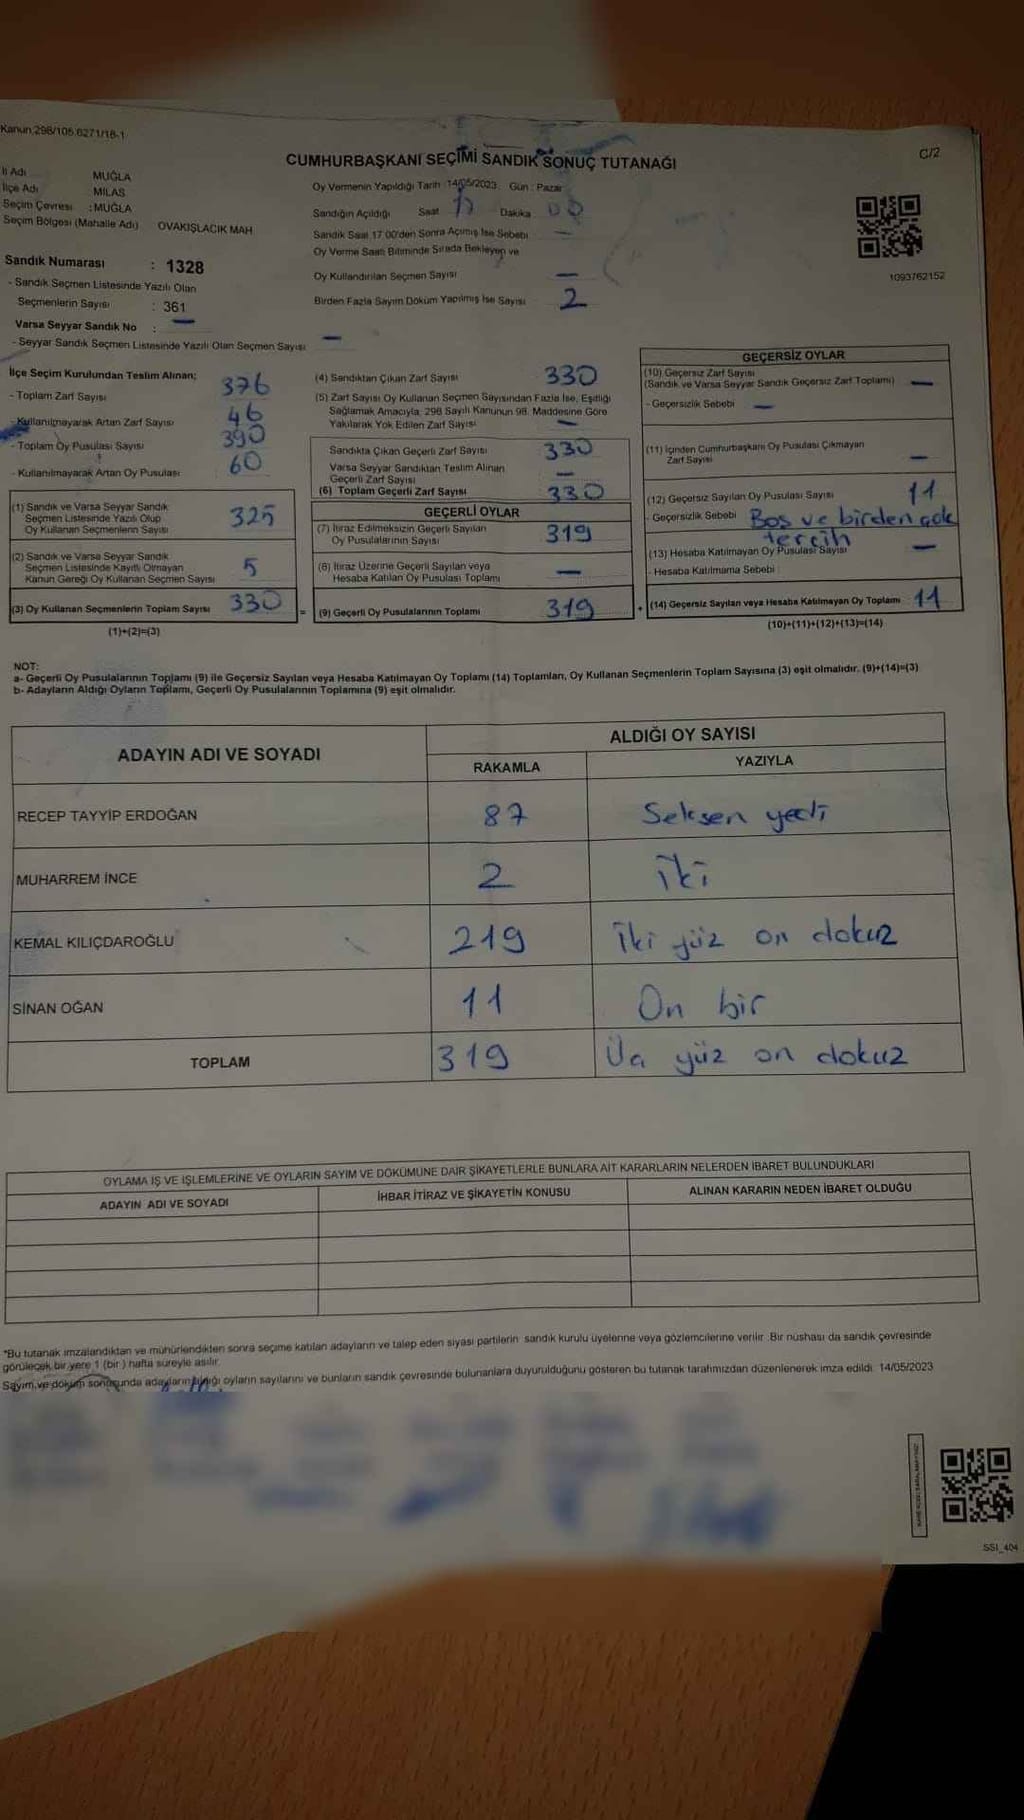 Kanun;298/105,6271/18-1
C/2
CUMHURBAŞKANI SEÇİMİ SANDIK SONUÇ TUTANAĞI
İl Adı MUĞLA
İlçe Adı MİLAS
Seçim Çevresi : MUĞLA
Seçim Bölgesi (Mahalle Adı) OVAKIŞLACIK MAH
Sandık Numarası : 1328
- Sandık Seçmen Listesinde Yazılı Olan
Seçmenlerin Sayısı : 361
Varsa Seyyar Sandık No : —
- Seyyar Sandık Seçmen Listesinde Yazılı Olan Seçmen Sayısı —
Oy Vermenin Yapıldığı Tarih :14/05/2023 Gün : Pazar
Sandığın Açıldığı Saat 17 Dakika 00
Sandık Saat 17:00'den Sonra Açılmış İse Sebebi —
Oy Verme Saati Bitiminde Sırada Bekleyen ve
Oy Kullandırılan Seçmen Sayısı —
Birden Fazla Sayım Döküm Yapılmış İse Sayısı 2
1093762152
İlçe Seçim Kurulundan Teslim Alınan;
- Toplam Zarf Sayısı 376
- Kullanılmayarak Artan Zarf Sayısı 46
- Toplam Oy Pusulası Sayısı 390
- Kullanılmayarak Artan Oy Pusulası 60
(1) Sandık ve Varsa Seyyar Sandık
Seçmen Listesinde Yazılı Olup
Oy Kullanan Seçmenlerin Sayısı 325
(2) Sandık ve Varsa Seyyar Sandık
Seçmen Listesinde Kayıtlı Olmayan
Kanun Gereği Oy Kullanan Seçmen Sayısı 5
(3) Oy Kullanan Seçmenlerin Toplam Sayısı 330 =
(1)+(2)=(3)
(4) Sandıktan Çıkan Zarf Sayısı 330
(5) Zarf Sayısı Oy Kullanan Seçmen Sayısından Fazla İse, Eşitliği
Sağlamak Amacıyla, 298 Sayılı Kanunun 98. Maddesine Göre
Yakılarak Yok Edilen Zarf Sayısı —
Sandıkta Çıkan Geçerli Zarf Sayısı 330
Varsa Seyyar Sandıktan Teslim Alınan
Geçerli Zarf Sayısı —
(6) Toplam Geçerli Zarf Sayısı 330
GEÇERLİ OYLAR
(7) İtiraz Edilmeksizin Geçerli Sayılan
Oy Pusulalarının Sayısı 319
(8) İtiraz Üzerine Geçerli Sayılan veya
Hesaba Katılan Oy Pusulası Toplamı —
(9) Geçerli Oy Pusulalarının Toplamı 319 +
GEÇERSİZ OYLAR
(10) Geçersiz Zarf Sayısı
(Sandık ve Varsa Seyyar Sandık Geçersiz Zarf Toplamı) —
- Geçersizlik Sebebi —
(11) İçinden Cumhurbaşkanı Oy Pusulası Çıkmayan
Zarf Sayısı —
(12) Geçersiz Sayılan Oy Pusulası Sayısı 11
- Geçersizlik Sebebi Boş ve birden çok
tercih
(13) Hesaba Katılmayan Oy Pusulası Sayısı —
- Hesaba Katılmama Sebebi :
(14) Geçersiz Sayılan veya Hesaba Katılmayan Oy Toplamı 11
(10)+(11)+(12)+(13)=(14)
NOT:
a- Geçerli Oy Pusulalarının Toplamı (9) ile Geçersiz Sayılan veya Hesaba Katılmayan Oy Toplamı (14) Toplamları, Oy Kullanan Seçmenlerin Toplam Sayısına (3) eşit olmalıdır. (9)+(14)=(3)
b- Adayların Aldığı Oyların Toplamı, Geçerli Oy Pusulalarının Toplamına (9) eşit olmalıdır.
ADAYIN ADI VE SOYADI
ALDIĞI OY SAYISI
RAKAMLA YAZIYLA
RECEP TAYYİP ERDOĞAN 87 Seksen yedi
MUHARREM İNCE 2 iki
KEMAL KILIÇDAROĞLU 219 İki yüz on dokuz
SİNAN OĞAN 11 On bir
TOPLAM 319 Üç yüz on dokuz
OYLAMA İŞ VE İŞLEMLERİNE VE OYLARIN SAYIM VE DÖKÜMÜNE DAİR ŞİKAYETLERLE BUNLARA AİT KARARLARIN NELERDEN İBARET BULUNDUKLARI
ADAYIN ADI VE SOYADI İHBAR İTİRAZ VE ŞİKAYETİN KONUSU ALINAN KARARIN NEDEN İBARET OLDUĞU
*Bu tutanak imzalandıktan ve mühürlendikten sonra seçime katılan adayların ve talep eden siyasi partilerin sandık kurulu üyelerine veya gözlemcilerine verilir. Bir nüshası da sandık çevresinde
görülecek bir yere 1 (bir ) hafta süreyle asılır.
Sayım ve döküm sonucunda adayların aldığı oyların sayılarını ve bunların sandık çevresinde bulunanlara duyurulduğunu gösteren bu tutanak tarafımızdan düzenlenerek imza edildi. 14/05/2023
SSI_404